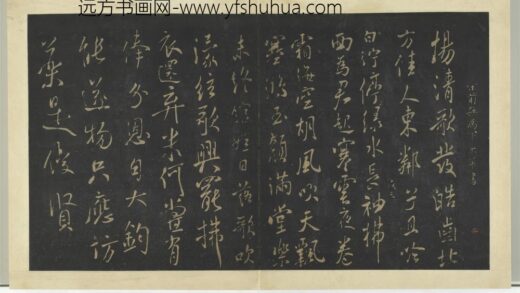 远方书画网-www.yfshuhua.com
揚清歌發皓齒北
方佳人東鄰子且吟
白紵停綠水長袖拂
面為君起寒雲夜卷
霜海空胡風吹天飄
塞鴻玉顏滿堂樂
未終館娃日落歌吹
濛絃歌興罷拂
衣還棄米何當肯
俸分恩自大鈞
能遂物只應訪
藥是優賢